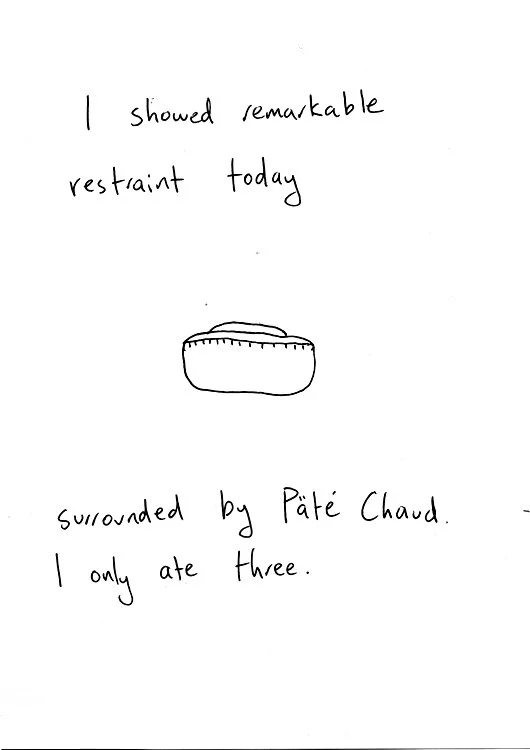 I showed remarkable
restraint today
surrounded by Päté Chaud.
I only ate three.